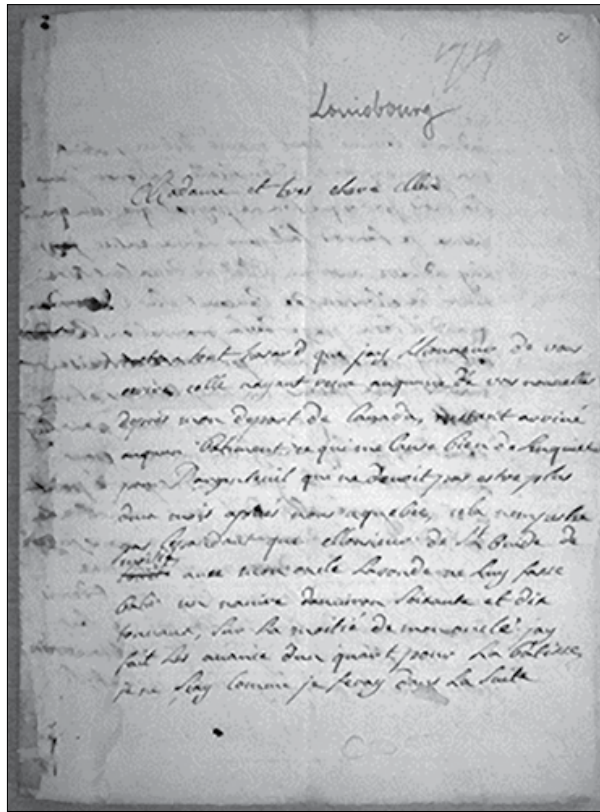 1719
Louisbourg
Madame et tres chere Mere
tout hazard que jay Lhonneur de vous
ecrire celle nayant recue auqueune de vos nouvelles
depuis mon depart de Canada, nestant arrivé
auqun batiment, ce qui me Cause bien de Linquiet
pour Dargenteuil que ne devoit pas estre plus
dun mois apres nous aquebec, cela nempeche
pas que Monsieur de de
avec mon oncle Laronde ne Luy fasse
batir un navire denviron Soixante et dix
tonneaux, Sur La moitié de mon oncle jay
fait Les avance dun quart pour La batisse,
je ne Scay comme je feray dans La Suite